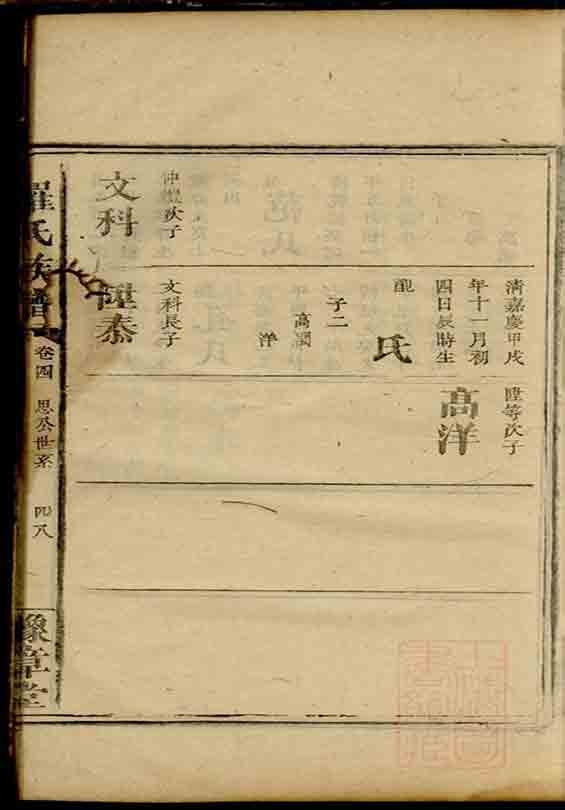 次子
文科
清嘉慶甲戌
年十一月初
四日辰時生
配
氏
子二
高
洋
文科長子
陞泰
陞等次子
高洋
羅氏族譜
卷四
思公世系
四八
豫章堂